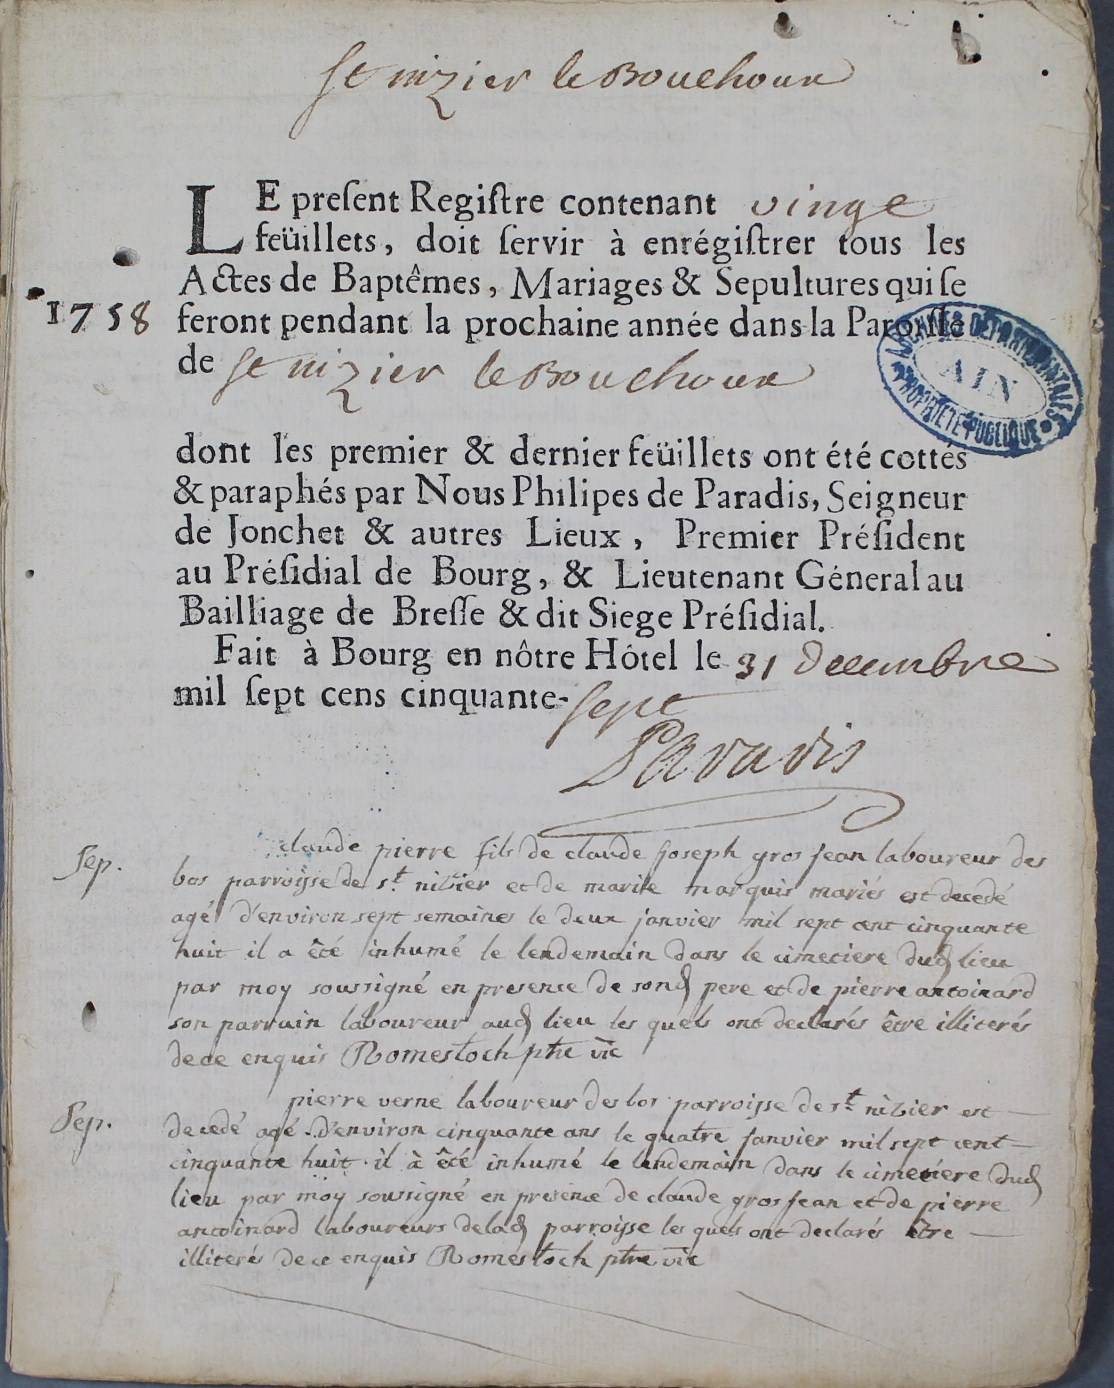 St nizier le Bouchoux
LE preſent Regiſtre contenant vingt
feüillets, doit ſervir à enrégiſtrer tous les
Actes de Baptêmes, Mariages & Sepultures qui ſe
1758 feront pendant la prochaine année dans la Paroiſſe
de St nizier le Bouchoux
ARCHIVES DÉPARTEMENTALES
AIN
PROPRIÉTÉ PUBLIQUE
dont les premier & dernier feüillets ont été cottés
& paraphés par Nous Philipes de Paradis, Seigneur
de Jonchet & autres Lieux, Premier Préſident
au Préſidial de Bourg, & Lieutenant Géneral au
Bailliage de Breſſe & dit Siege Préſidial.
Fait à Bourg en nôtre Hôtel le 31 Decembre
mil ſept cens cinquante-ſept
Paradis
Sep. claude pierre fils de claude joseph gros jean laboureur des
bos parroisse de st. nizier et de marie marquis mariés est decedé
agé d'environ sept semaines le deux janvier mil sept cent cinquante
huit il a êté inhumé le lendemain dans le cimetiere dud lieu
par moy soussigné en presence de sond pere et de pierre antoinard
son parrain laboureur aud lieu les quels ont declarés être illiterés
de ce enquis Romestoch ptre vic
Sep. pierre verne laboureur des bos parroisse de st. nizier est
decedé agé d'environ cinquante ans le quatre janvier mil sept cent
cinquante huit il à êté inhumé le lendemain dans le cimetiere dud
lieu par moy soussigné en presence de claude gros jean et de pierre
antoinard laboureurs de lad parroisse les quels ont declarés être
illiterés de ce enquis Romestoch ptre vic